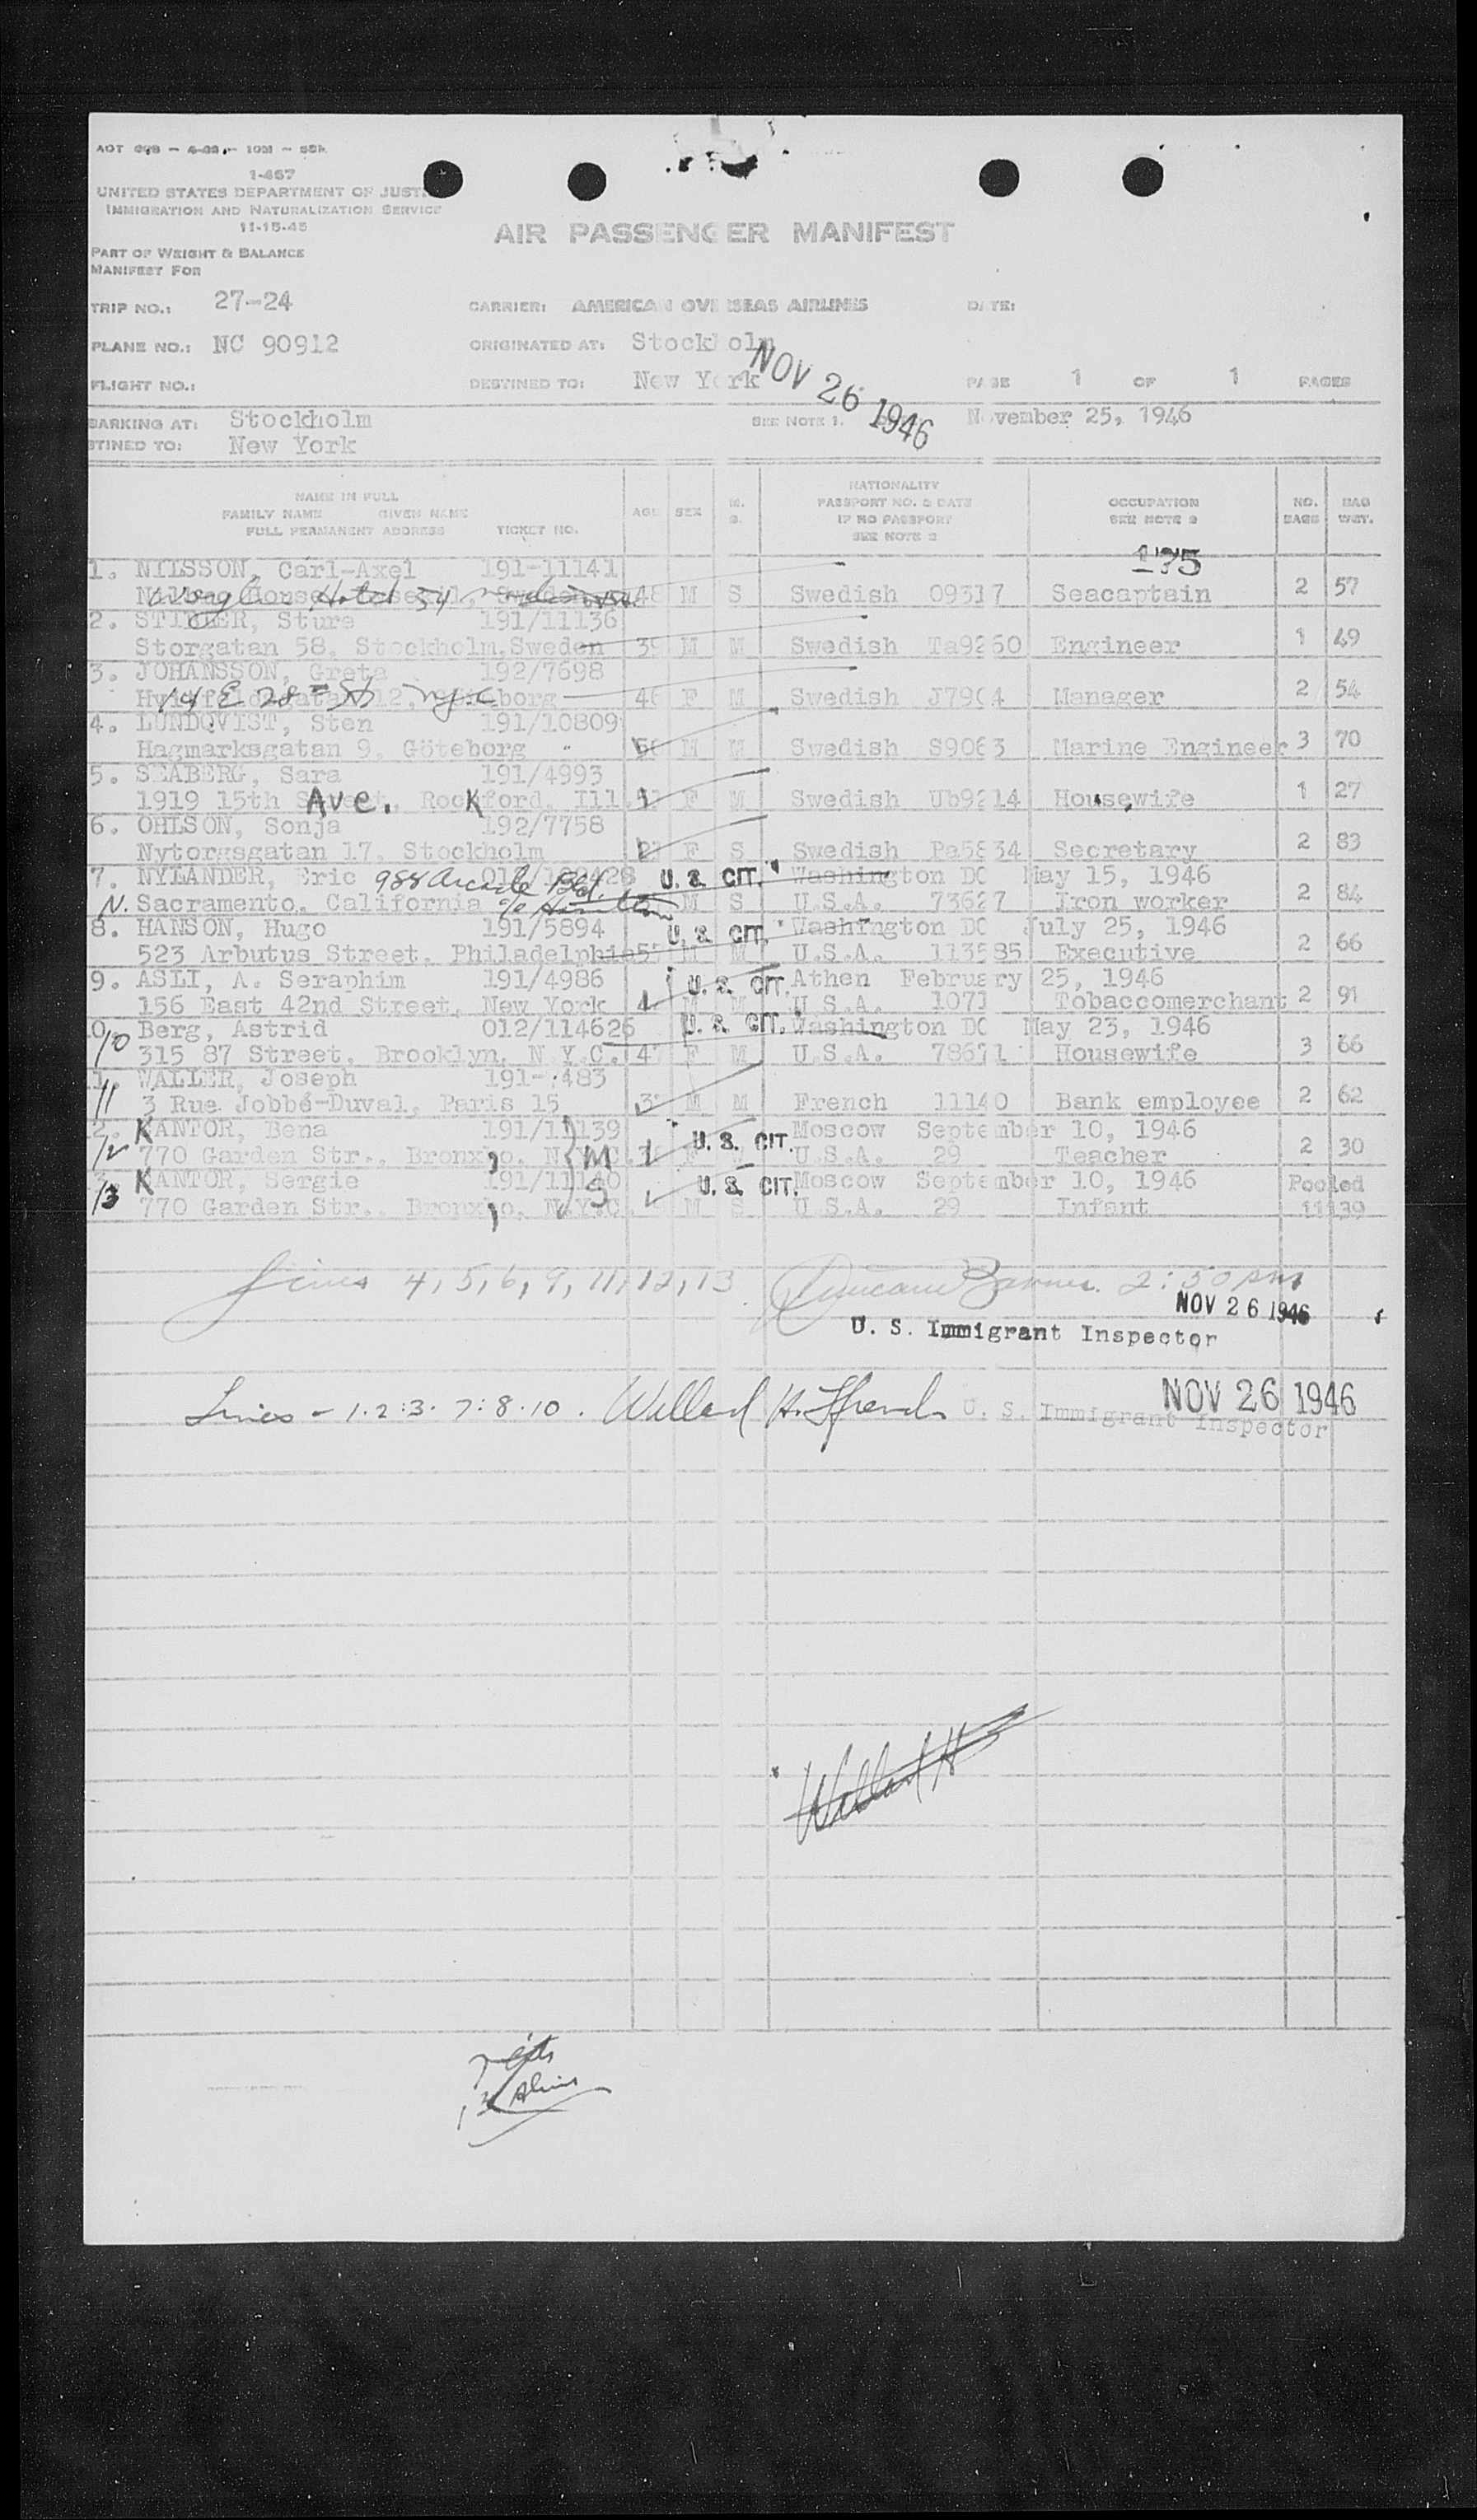 1-467
UNITED STATES DEPARTMENT OF JUST
IMMIGRATION AND NATURALIZATION SERVICE
11-15-45
AIR PASSENGER MANIFEST
PART OF WEIGHT & BALANCE
MANIFEST FOR
TRIP NO.: 27-24 CARRIER: AMERICAN OVERSEAS AIRLINES DATE:
PLANE NO.: NC 90912 ORIGINATED AT: Stockholm
FLIGHT NO.: DESTINED TO: New York PAGE 1 OF 1 PAGES
NOV 26 1946
BARKING AT: Stockholm SEE NOTE 1. November 25, 1946
STINED TO: New York
NAME IN FULL
FAMILY NAME GIVEN NAME
FULL PERMANENT ADDRESS TICKET NO.
AGE SEX M. S.
NATIONALITY
PASSPORT NO. & DATE
IF NO PASSPORT
SEE NOTE 2
OCCUPATION
SEE NOTE 2
NO. BAGS
BAG WGT.
175
1. NILSSON, Carl-Axel 191-11141
Hotel 54 48 M S Swedish Seacaptain 2 57
2. Sture 191/11136
Storgatan 58, Stockholm, Sweden 39 M M Swedish Engineer 1 49
3. JOHANSSON, Greta 192/7698
14 E 28th St nyc F M Swedish Manager 2 54
4. LUNDQVIST, Sten 191/10809
Hagmarksgatan 9, Göteborg M M Swedish Marine Engineer 3 70
5. SEABERG, Sara 191/4993
1919 15th Ave. Rockford, Ill. F M Swedish Housewife 1 27
6. OHLSON, Sonja 192/7758
Nytorgsgatan 17, Stockholm F S Swedish Secretary 2 83
7. NYLANDER, Eric 988 Arcade Bld. U. S. CIT. Washington DC May 15, 1946
N. Sacramento, California M S U.S.A. Iron worker 2 84
8. HANSON, Hugo 191/5894 U. S. CIT. Washington DC July 25, 1946
523 Arbutus Street, Philadelphia M M U.S.A. Executive 2 66
9. ASLI, A. Seraphim 191/4986 U. S. CIT. Athen February 25, 1946
156 East 42nd Street, New York M M U.S.A. Tobaccomerchant 2 91
10 Berg, Astrid 012/114626 U. S. CIT. Washington DC May 23, 1946
315 87 Street, Brooklyn, N.Y.C. 47 F M U.S.A. Housewife 3 66
11 WALLER, Joseph
3 Rue Jobbé-Duval, Paris 15 M M French Bank employee 2 62
12 KANTOR, Bena 191/11139 U. S. CIT. Moscow September 10, 1946
770 Garden Str., Bronx, M U.S.A. 29 Teacher 2 30
13 KANTOR, Sergie 191/11140 U. S. CIT. Moscow September 10, 1946 Pooled
770 Garden Str., Bronx, N.Y.C. S M S U.S.A. 29 Infant 11139
Lines 4, 5, 6, 9, 11, 12, 13 2:50 pm
NOV 26 1946
U. S. Immigrant Inspector
Lines - 1. 2: 3. 7: 8. 10. Willard H. NOV 26 1946
U. S. Immigrant Inspector
Willard H